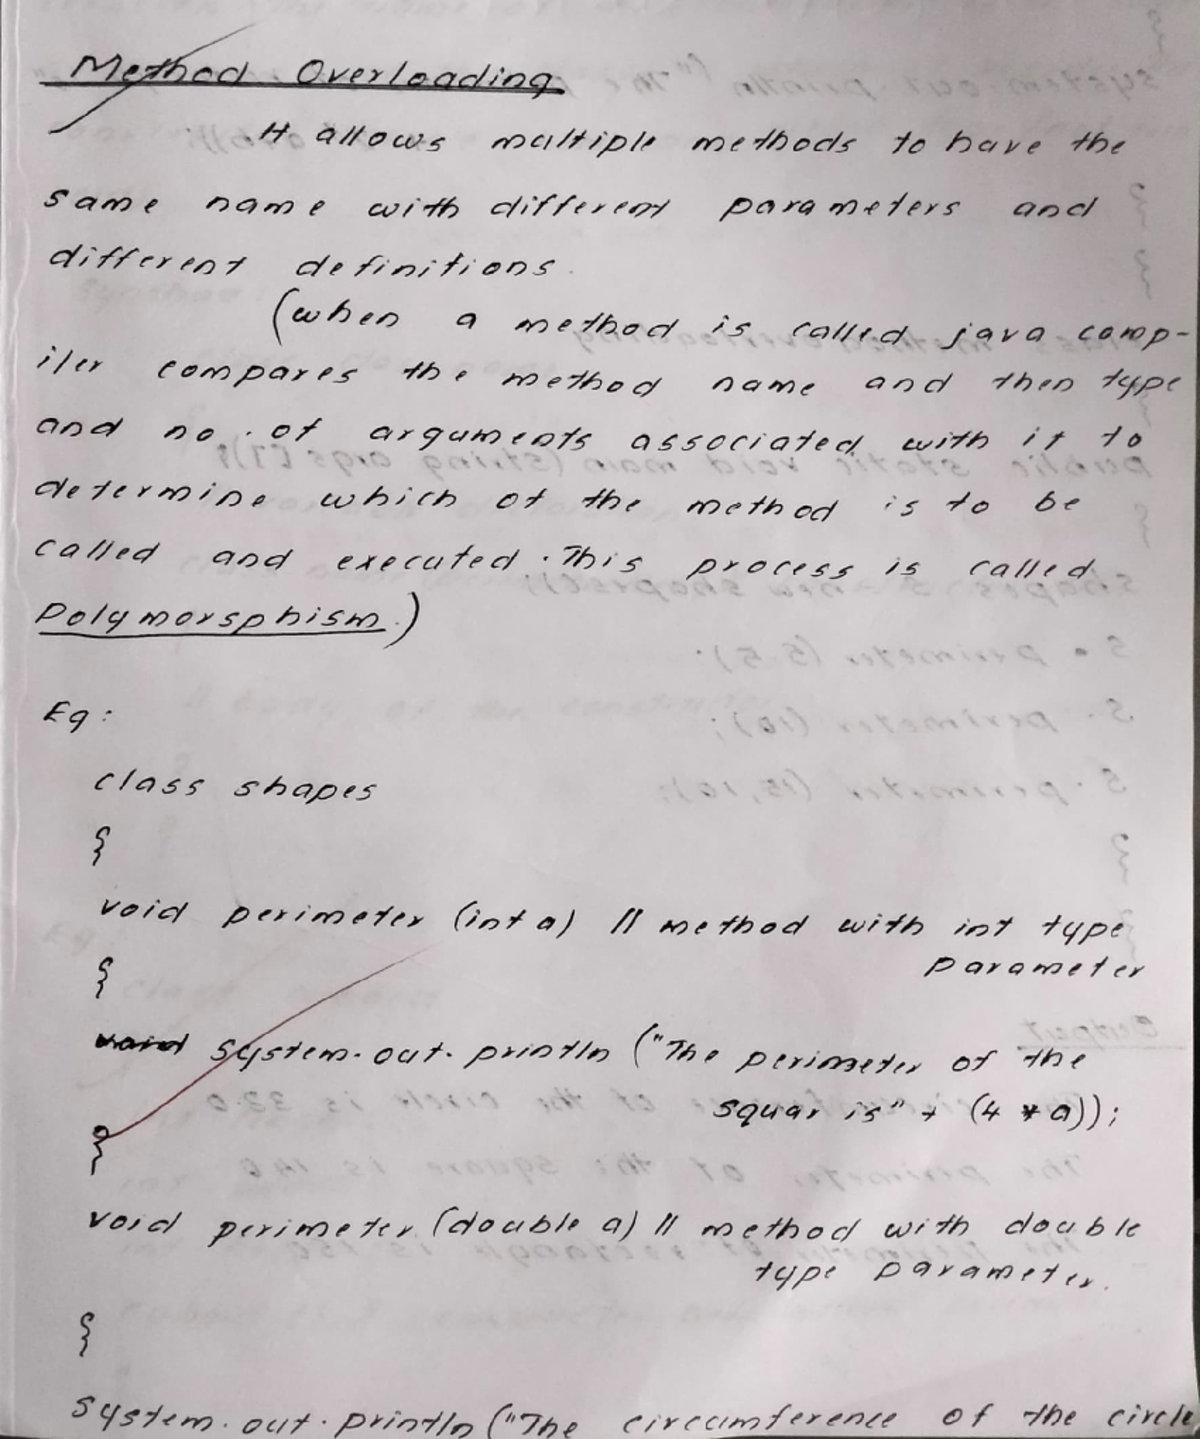 Method Overloading
It allows multiple methods to have the
same name with different parameters and
different definitions.
(when a method is called java comp-
iler compares the method name and then type
and no. of arguments associated with it to
determine which of the method is to be
called and executed. This process is called
Polymorsphism.)
Eg:
class shapes
{
void perimeter (int a) // method with int type
parameter
{
void system.out.println ("The perimeter of the
squar is" + (4 * a));
}
void perimeter (double a) // method with double
type parameter.
{
system.out.println ("The circumference of the circle